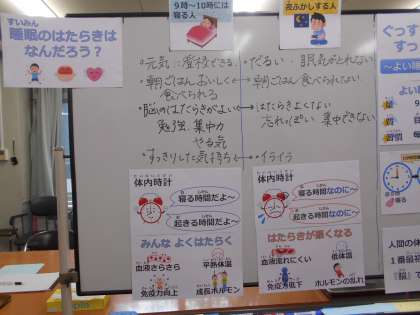 すいみん
睡眠のはたらきは
なんだろう？
９時～１０時には
寝る人
夜ふかしする人
・元気に登校できる
・朝ごはんおいしく
食べられる
・脳のはたらきがよい
勉強 集中力
やる気
・すっきりした気持ち
・だるい 眠気がとれない
・朝ごはん食べられない
・はたらきよくない
忘れっぽい 集中できない
・イライラ
体内時計
寝る時間だよ～
起きる時間だよ～
みんな よくはたらく
血液さらさら
平熱体温
免疫力向上
成長ホルモン
体内時計
寝る時間なのに～
起きる時間なのに～
はたらきが悪くなる
血流れにくい
低体温
免疫低下
ホルモンの乱れ
ぐっす
すっ
～よい睡
人間の体
１番最初